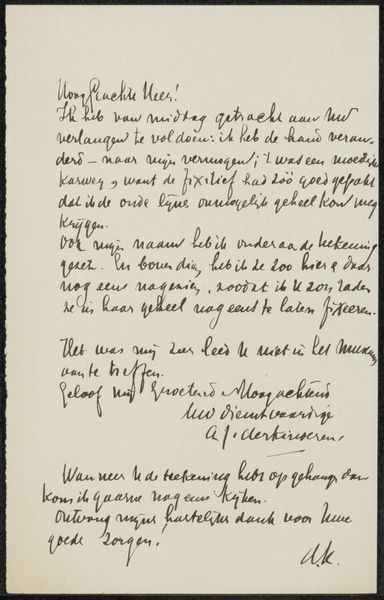 Hoog Geachte Heer!
Ik heb van middag getracht aan Uw
verlangen te voldoen: ik heb de hand veran-
derd – naar mijn vermogen; 't was een moeilijk
karwei, want de fixatief had zóó goed gepakt
dat ik de oude lijnen onmogelijk geheel kon weg
krijgen.
Ook mijn naam heb ik onder aan de teekening
gezet. En bovendien heb ik ze zoo hier & daar
nog eens nagezien, zoodat ik U zou raden
ze in haar geheel nog eens te laten fixeeren.
Het was mij zeer leed U niet in het museum
aan te treffen.
Geloof mij Groetend Hoogachtend
Uw dienstvaardige
A J. derkinderen.
Wanneer U de teekening hebt opgehangen dan
kom ik gaarne nog eens kijken.
Ontvang mijn hartelijke dank voor Uwe
goede zorgen.
d.K.